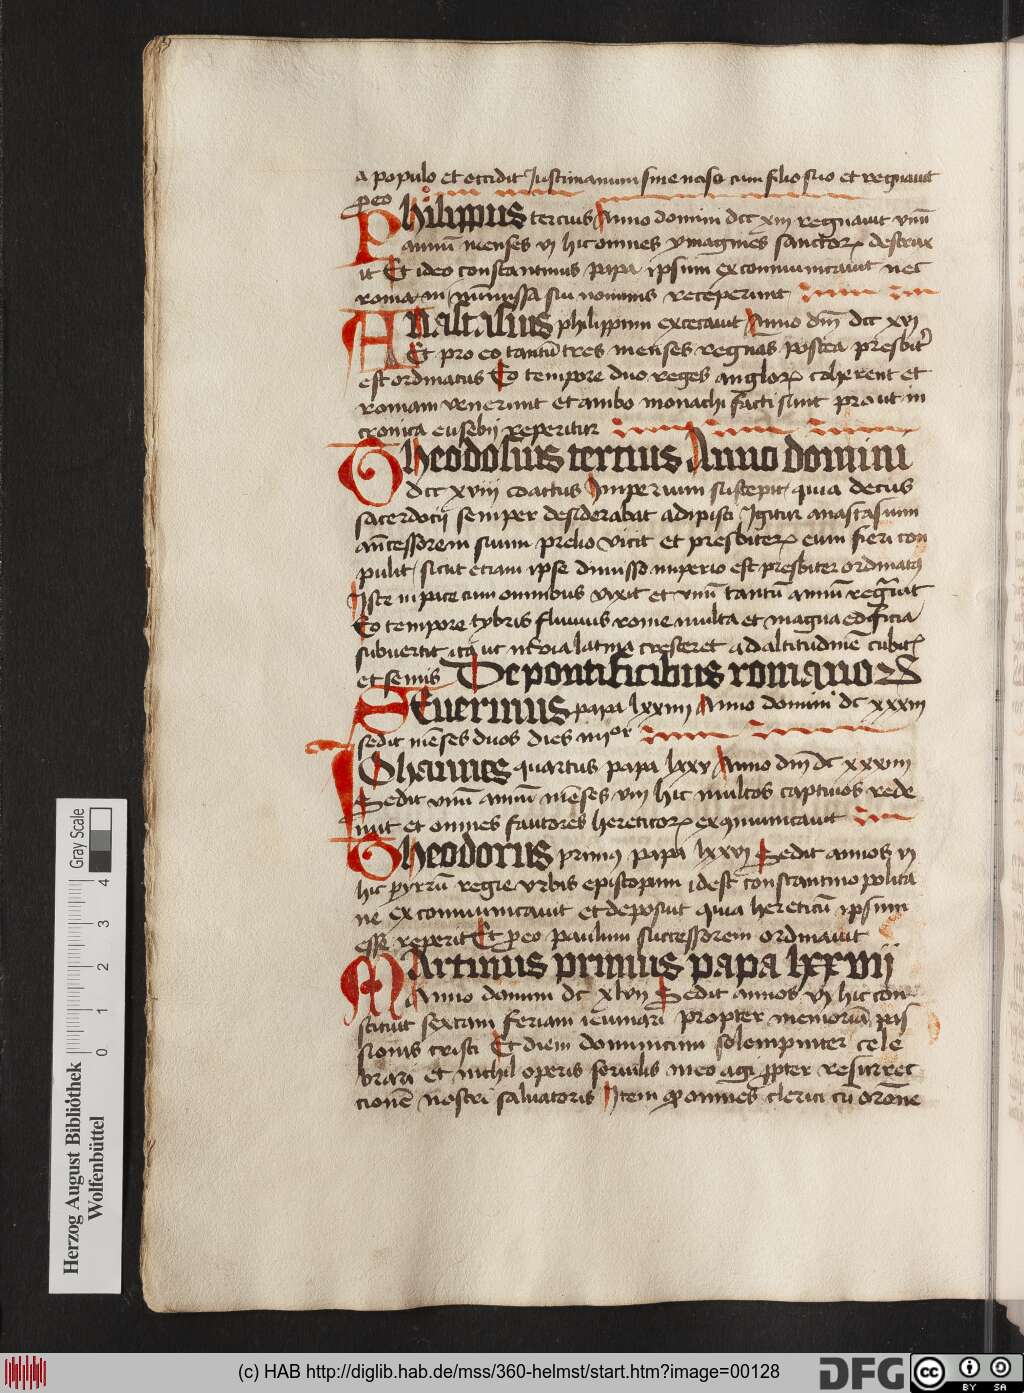 a populo et occidit Justinianum sine naso cum filio suo et regnauit
p eo
Philippus tercius Anno domini dcc xiij regnauit vnū
annū menses vj hic omnes ymagines sanctorꝝ destrux
it Et ideo constantinus papa ipsum excommunicauit nec
romani in missa sui nominis receperunt
Anastasius philippum excecauit Anno dm̄ dcc xvj
Et pro eo tantū tres menses regnās postea presbit̉
est ordinatus Eo tempore duo reges anglorꝝ et
romam venerunt et ambo monachi facti sunt prout in
cronica eusebij reperitur
Theodosius tercius Anno domini
dcc xviij coactus Imperium suscepit quia decus
sacerdocij semper desiderabat adipisci Igitur anastasium
ancessorem suum prelio vicit et presbiterꝝ eum fieri con
pulit sicut etiam ipse dimisso imperio est presbiter ordinatꝰ
Iste in pace cum omnibus vixit et vnū tantū annū regnauit
Eo tempore tybris fluuius rome multa et magna edificia
subuertit ita ut in via latina cresceret ad altitudinē cubitꝝ
et semis De pontificibus romanoꝝ
Seuerinus papa lxxiiij Anno domini dc xxxiij
sedit mēses duos dies iiijor
Iohannes quartus papa lxxv Anno dm̄ dc xxxiiij
Sedit vnū annū mēses viij hic multos captiuos rede
mit et omnes fautores hereticorꝝ exꝯmunicauit
Theodorus primꝰ papa lxxvj Sedit annos vj
hic pyrrū regie vrbis episcopum idest constantino polita
ne excommunicauit et deposuit quia hereticū ipsum
esse reperit Et p eo paulum successorem ordinauit
Martinus primus papa lxxvij
Anno domini dc xlvij Sedit annos vj hic con
stituit sextam feriam ieiunari propter memoriā pas
sionis cristi Et diem dominicum solempniter cele
brari et nichil operis seruilis in eo agi ꝓpter resurrec
cionē nostri saluatoris Item ꝙ omnes clerici cū orōne
Herzog August Bibliothek
Wolfenbüttel
0 1 2 3 4
Gray Scale
(c) HAB http://diglib.hab.de/mss/360-helmst/start.htm?image=00128
DFG
cc BY SA